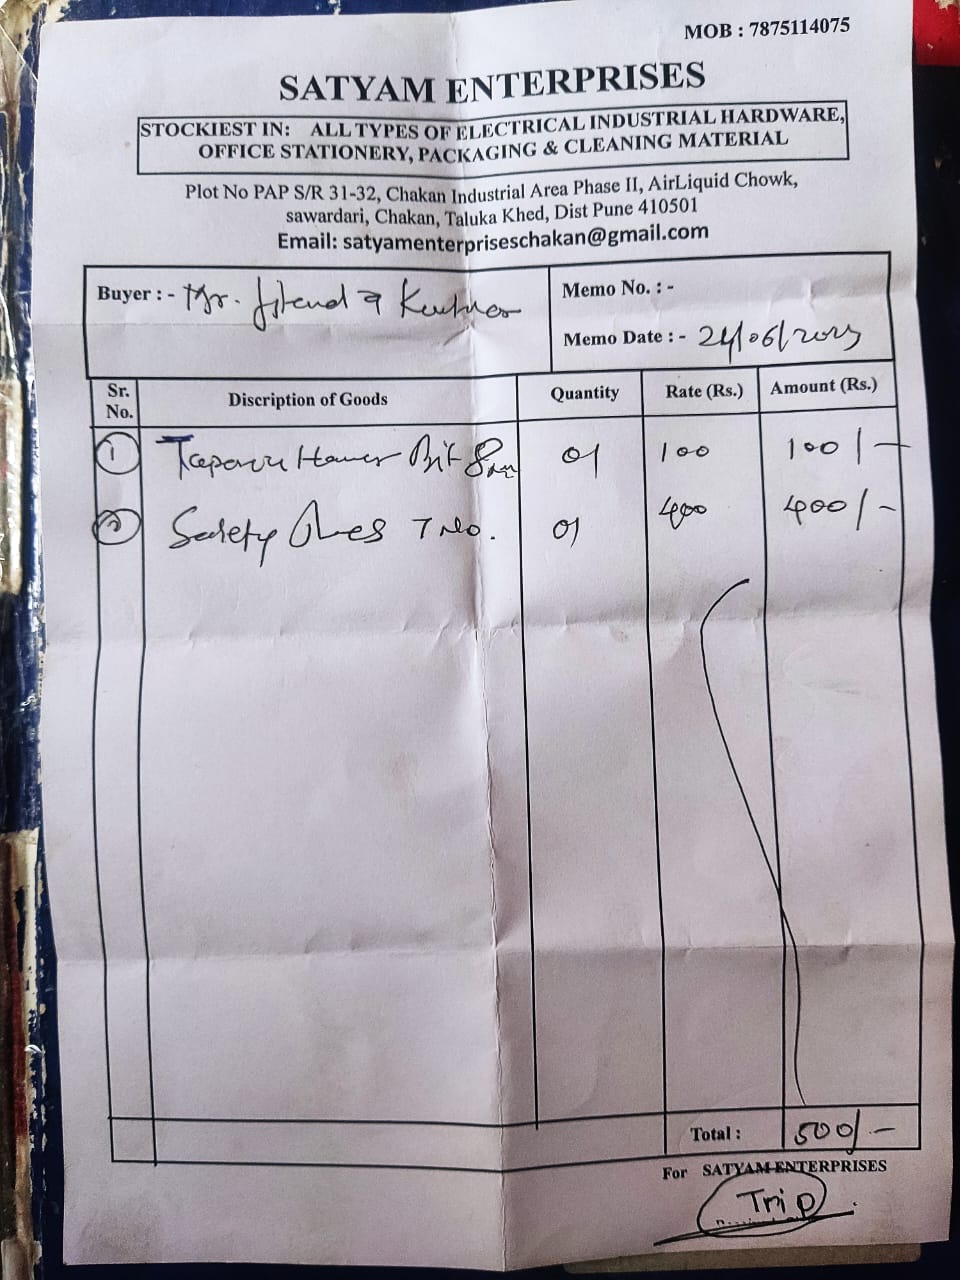 MOB : 7875114075
SATYAM ENTERPRISES
STOCKIEST IN: ALL TYPES OF ELECTRICAL INDUSTRIAL HARDWARE,
OFFICE STATIONERY, PACKAGING & CLEANING MATERIAL
Plot No PAP S/R 31-32, Chakan Industrial Area Phase II, AirLiquid Chowk,
sawardari, Chakan, Taluka Khed, Dist Pune 410501
Email: satyamenterpriseschakan@gmail.com
Buyer : - Mr.
Memo No. : -
Memo Date : - 24/06/2023
Sr. No. Discription of Goods Quantity Rate (Rs.) Amount (Rs.)
1 Bit 8mm 01 100 100/-
2 Safety Shoes 7 No. 01 400 400/-
Total : 500/-
For SATYAM ENTERPRISES